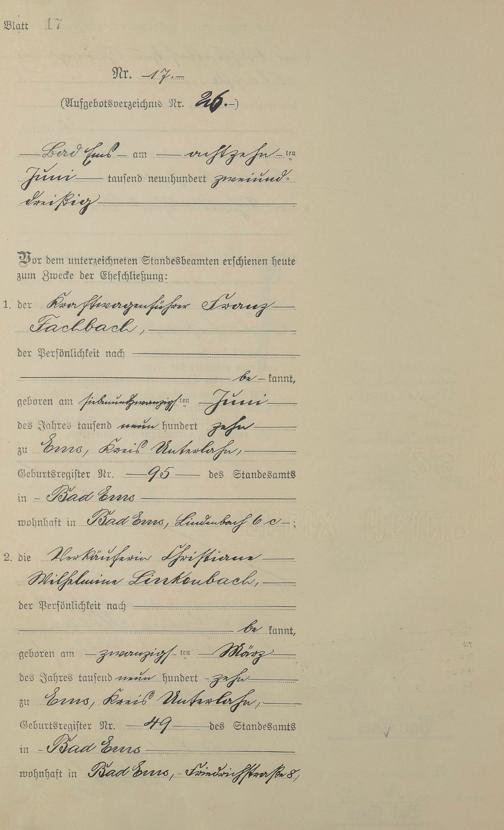 Blatt 17
Nr. 17.
(Aufgebotsverzeichnis Nr. 26.)
Bad Ems am achtzehn ten
Juni tausend neunhundert zweiund-
dreißig
Vor dem unterzeichneten Standesbeamten erschienen heute
zum Zwecke der Eheschließung:
1. der Kraftwagenführer Franz
Fachbach,
der Persönlichkeit nach
be kannt,
geboren am siebenundzwanzigsten Juni
des Jahres tausend neun hundert zehn
zu Ems, Kreis Unterlahn,
Geburtsregister Nr. 95 des Standesamts
in Bad Ems
wohnhaft in Bad Ems, Lindenbach 6 c ;
2. die Verkäuferin Christiane
Wilhelmine Linkenbach,
der Persönlichkeit nach
be kannt,
geboren am zwanzigsten März
des Jahres tausend neun hundert zehn
zu Ems, Kreis Unterlahn,
Geburtsregister Nr. 49 des Standesamts
in Bad Ems
wohnhaft in Bad Ems, Friedrichstraße 8,